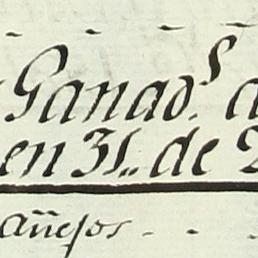 Ganad.s
en 31,, de
añejos - -